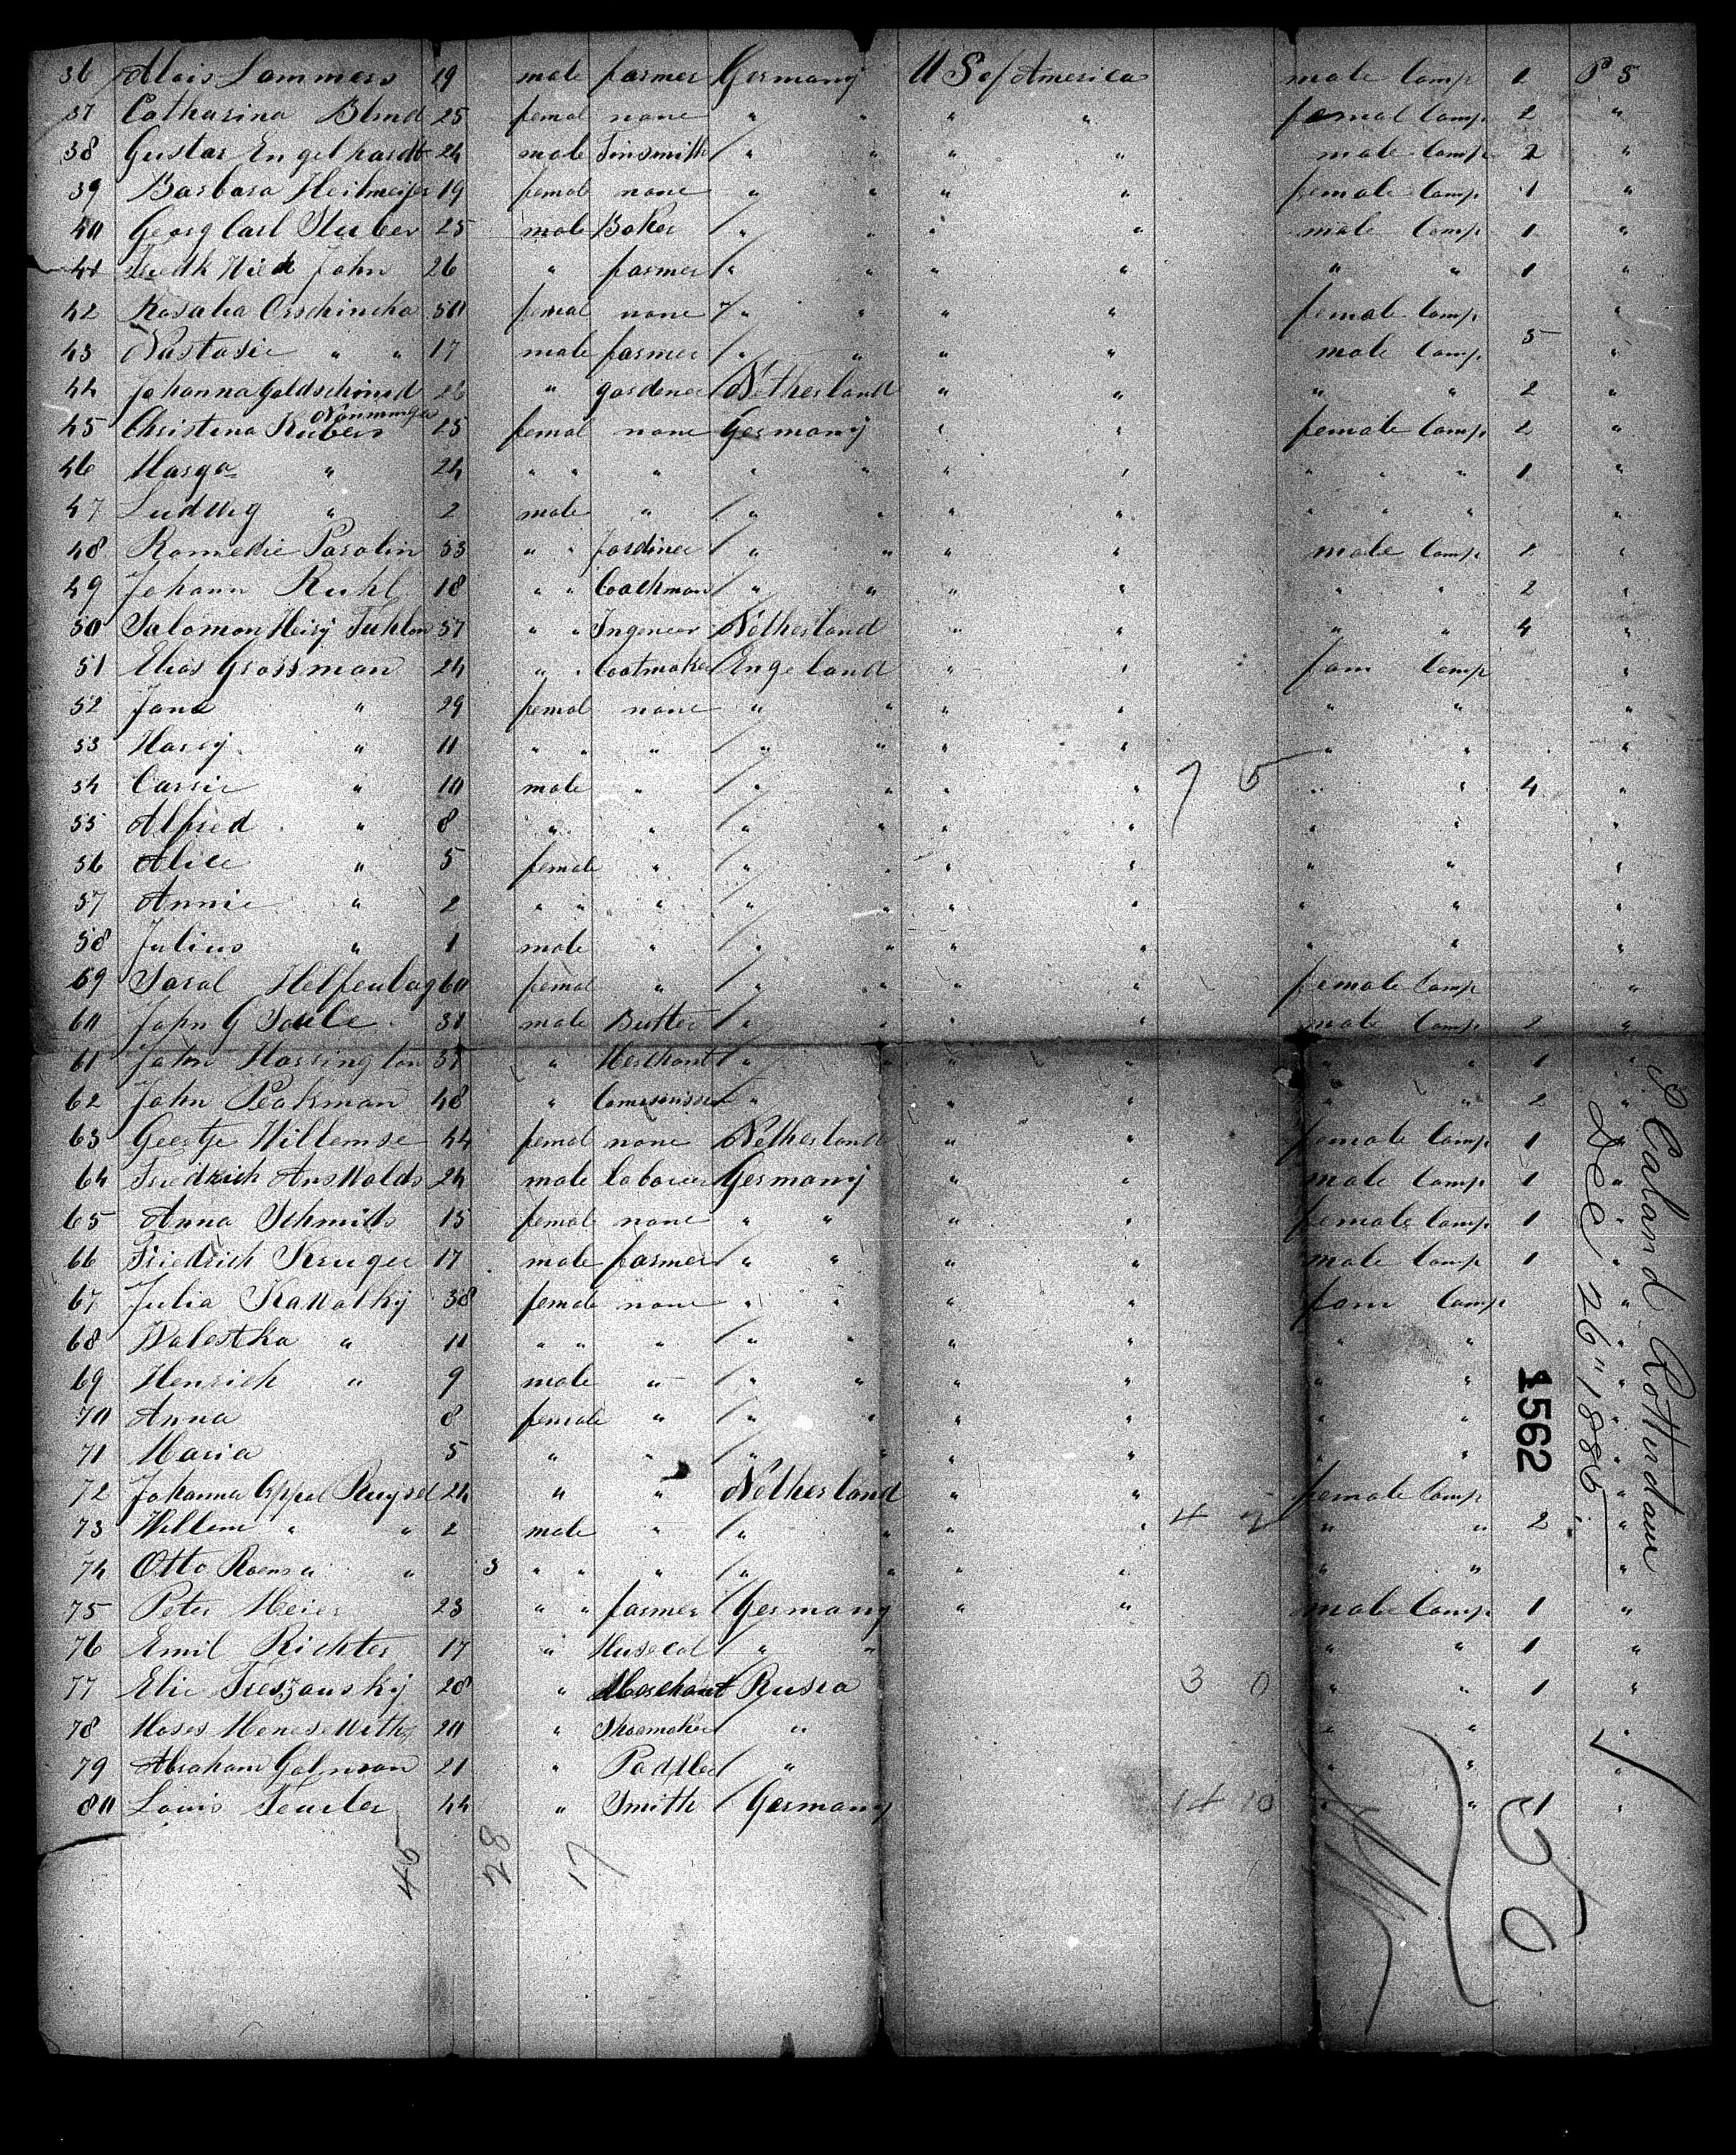 36 Alois Lammers 19 male farmer Germany U S of America male Comp 1 P S
37 Catharina Blind 25 femal none " " " " femal Comp 2 "
38 Gustav Engelhardt 24 male Tinsmith " " " " male Comp 2 "
39 Barbara Heilmeijer 19 femal none " " " " female Comp 1 "
40 Georg Carl Stuber 25 male Baker " " " " male Comp 1 "
41 Fredk John 26 " farmer " " " " " " 1 "
42 Rosalia Orschincka 50 femal none " " " " female Comp "
43 Nastasie " " 17 male farmer " " " " male Comp 5 "
44 Johanna Goldschmid 26 " gardener Netherland " " " " 2 "
Nonninger
45 Christina Kubers 25 femal none Germany " " female Comp 2 "
46 Marga " 24 " " " " " " " " " " 1 "
47 Ludwig " 2 male " " " " " " " " "
48 Romedie Parolin 53 " " Jardiner " " " " male Comp 2 "
49 Johann Ruhl 18 " " Coachman " " " " " " 2 "
50 Salomon Heirij 57 " " Ingeneer Netherland " " " " 4 "
51 Elias Grossman 24 " " Coatmaker Engeland " " fam Comp "
52 Jane " 29 femal none " " " " " " "
53 Harry " 11 " " " " " " " " " "
54 Cassie " 10 male " " " " " 7 5 " " 4 "
55 Alfred " 8 " " " " " " " " "
56 Alice " 5 female " " " " " " " "
57 Annie " 2 " " " " " " " " " "
58 Julius " 1 male " " " " " " " "
59 Saral Helfenbag 60 femal " " " " " female Comp "
60 John G Soule 31 male Butter " " " " male Comp 2 "
61 John Harrington 35 " Merchant " " " " " " 1 "
62 John Peakman 48 " " " " " " " 2 "
63 Geertje Willemse 44 femal none Netherland " " female Comp 1 "
64 Friedrich Answalds 24 male laborer Germany " " male Comp 1 "
65 Anna Schmids 15 femal none " " " " female Comp 1 "
66 Friedrich Kruger 17 male farmer " " " " male Comp 1 "
67 Julia Kawalkij 38 female none " " " " fam Comp "
68 Walestka " 11 " " " " " " " " " "
69 Henrich " 9 male " " " " " " " "
70 Anna 8 female " " " " " " " "
71 Maria 5 " " " " " " " " "
72 Johanna Appel Ruysd 24 " " Netherland " " female Comp "
73 Willem " " 2 male " " " " " 4 2 " " 2 "
74 Otto Roems " " 3 " " " " " " " " " "
75 Peter Meier 23 " " farmer Germany " " male Comp 1 "
76 Emil Richter 17 " Musecal " " " " 1 "
77 Elie Treszanskij 28 " Merchant Rusia 3 0 " " 1 "
78 Moses 20 " Shoemaker " " " "
79 Abraham Galinson 21 " Paddler " " " "
80 Louis Teurler 44 " Smith Germany 14 10 " " 1 "
45 28 17
P Caland Rotterdam
Dec 26" 1886
1562